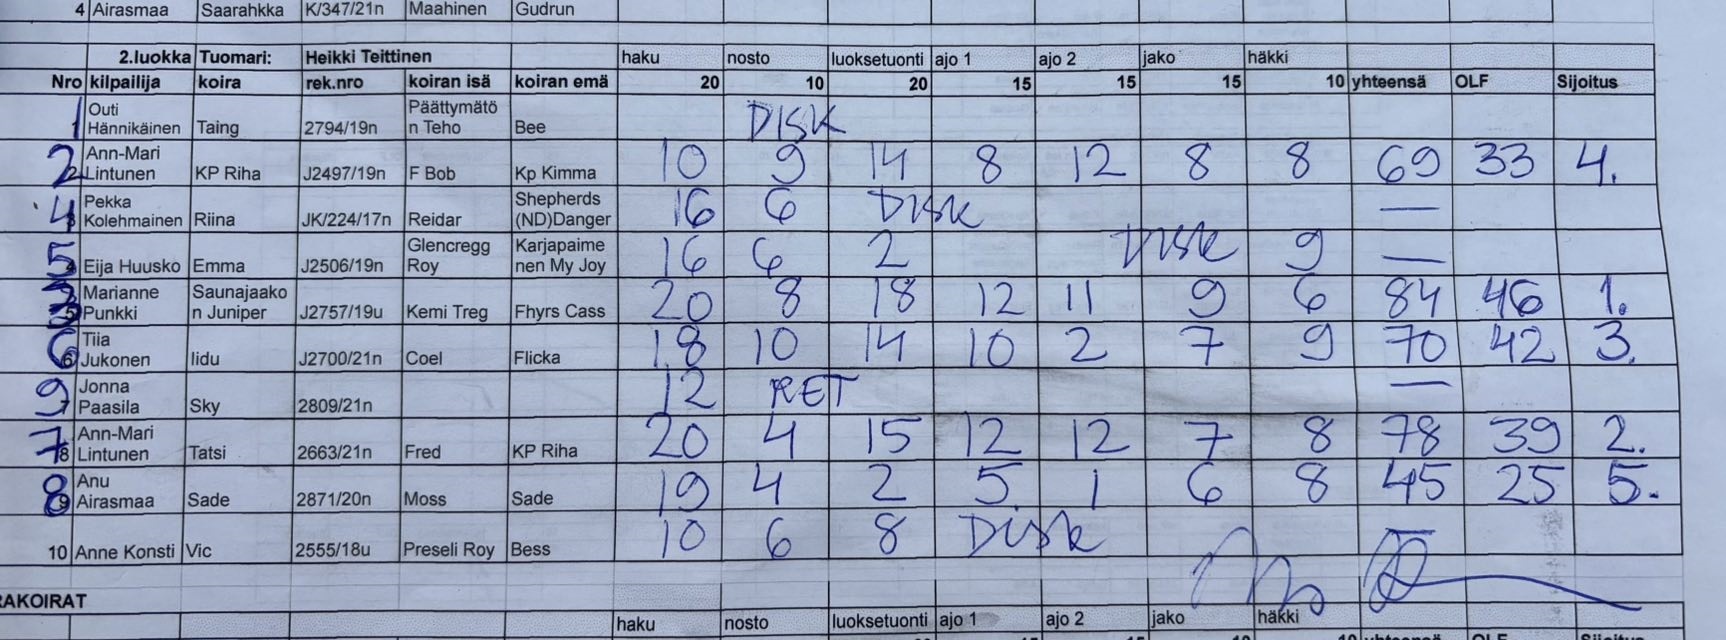 4 Airasmaa Saarahkka K/347/21n Maahinen Gudrun
2.luokka Tuomari: Heikki Teittinen haku nosto luoksetuonti ajo 1 ajo 2 jako häkki
Nro kilpailija koira rek.nro koiran isä koiran emä 20 10 20 15 15 15 10 yhteensä OLF Sijoitus
1 Outi Hännikäinen Taing 2794/19n Päättymätö n Teho Bee DISK
2 Ann-Mari Lintunen KP Riha J2497/19n F Bob Kp Kimma 10 9 14 8 12 8 8 69 33 4.
4 Pekka Kolehmainen Riina JK/224/17n Reidar Shepherds (ND)Danger 16 6 DISK —
5 Eija Huusko Emma J2506/19n Glencregg Roy Karjapaime nen My Joy 16 6 2 DISK 9 —
3 Marianne Punkki Saunajaako n Juniper J2757/19u Kemi Treg Fhyrs Cass 20 8 18 12 11 9 6 84 46 1.
6 Tiia Jukonen Iidu J2700/21n Coel Flicka 18 10 14 10 2 7 9 70 42 3.
9 Jonna Paasila Sky 2809/21n 12 RET —
7 8 Ann-Mari Lintunen Tatsi 2663/21n Fred KP Riha 20 4 15 12 12 7 8 78 39 2.
8 9 Anu Airasmaa Sade 2871/20n Moss Sade 19 4 2 5 1 6 8 45 25 5.
10 Anne Konsti Vic 2555/18u Preseli Roy Bess 10 6 8 Disk
RAKOIRAT
haku nosto luoksetuonti ajo 1 ajo 2 jako häkki